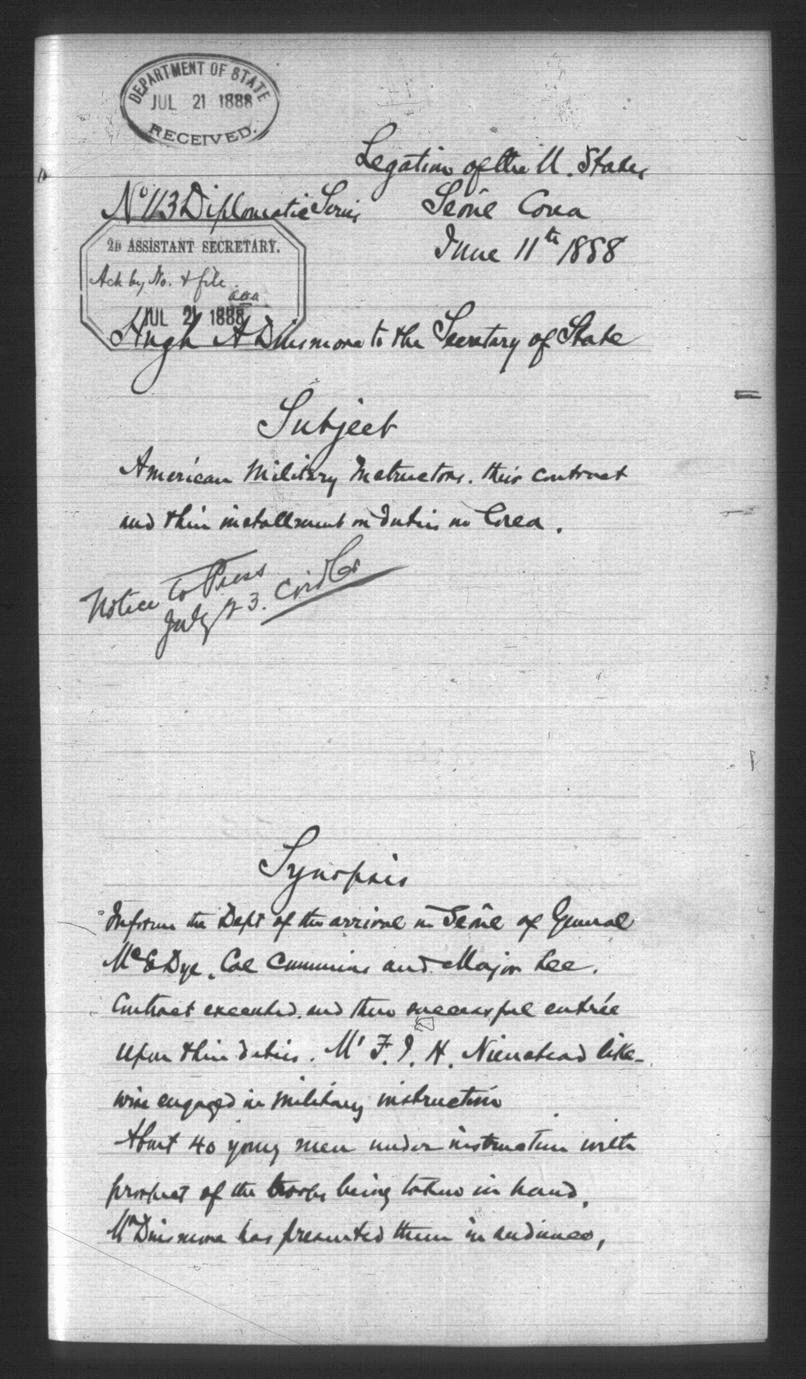 DEPARTMENT OF STATE
JUL 21 1888
RECEIVED.
Legation of the U. States
No 113 Diplomatic Series
Seoul Corea
June 11th 1888
2D ASSISTANT SECRETARY.
Ack by No. & file
JUL 21 1888
Hugh A Dinsmore to the Secretary of State
Subject
American Military Instructors. their contract
and their installment on duties in Corea.
Notice to Press
July 23.
Synopsis
Inform the Dept of the arrival in Seoul of General
Mc E Dye, Col Cummins and Major Lee.
Contract executed. and their successful entrée
upon their duties. Mr F. J. H. Nienstead like-
wise engaged in military instruction
About 40 young men under instruction with
prospect of the troops being taken in hand.
Mr Dinsmore has presented them in audience,